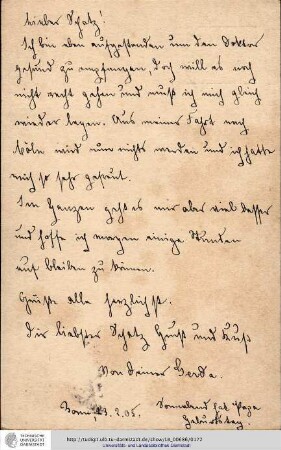 Lieber Schatz!
Ich bin eben aufgestanden um den Doktor
gesund zu empfangen, doch will es noch
nicht recht gehen und muß ich mich gleich
wieder legen. Aus meiner Fahrt nach
Köln wird nun nichts werden und ich hatte
mich so sehr gefreut.
Im Ganzen geht es mir aber viel besser
und hoffe ich morgen einige Stunden
auf bleiben zu können.
Grüße alle herzlichst.
Dir liebster Schatz Gruß und Kuß
Von Deiner Gerda.
Bonn, 2.05. Sonnabend hat Papa
Geburtstag.
TECHNISCHE
UNIVERSITÄT
DARMSTADT
Universitäts- und Landesbibliothek Darmstadt